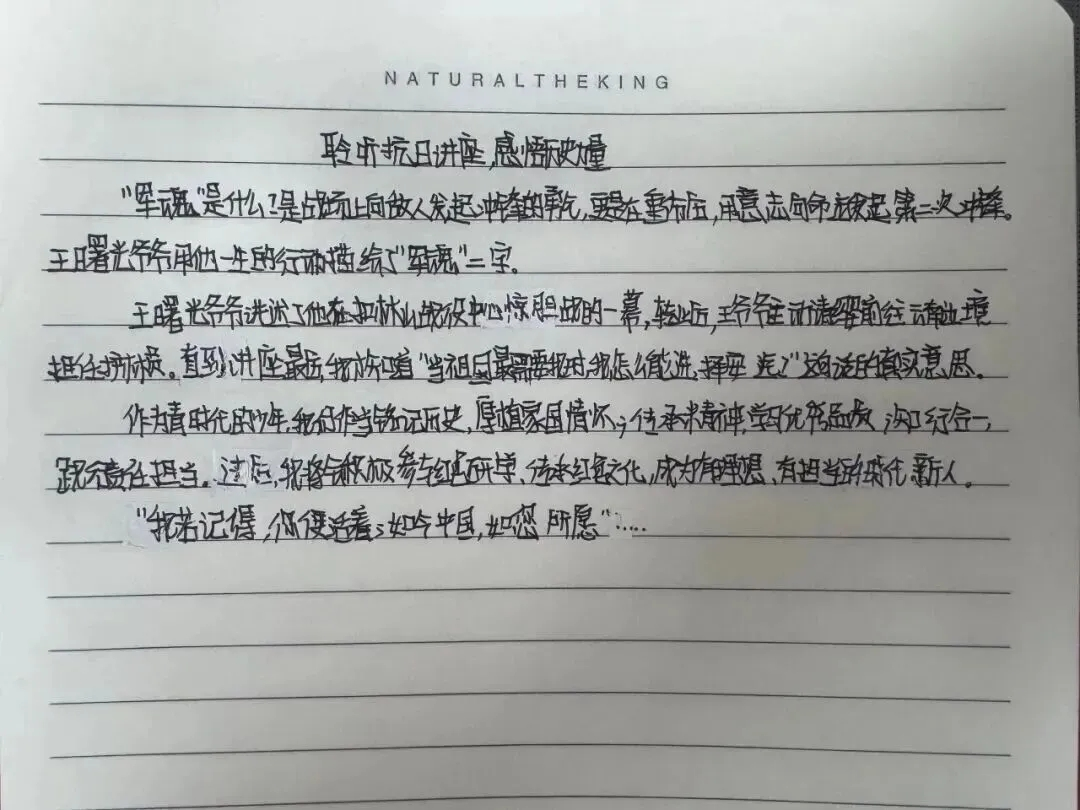 NATURALTHEKING
聆听抗日讲座,感悟历史力量
“军魂”是什么?是战场上向敌人发起冲锋的勇气,更是在重伤后,用意志向命运发起第二次冲锋。
王曙光爷爷用他一生的行动描绘了“军魂”二字。
王曙光爷爷讲述了他在扣林山战役中心惊胆战的一幕,转业后,王爷爷主动请缨前往云南边境
担任排。直到讲座最后,我才知道“当祖国最需要我时,我怎么能选择安逸”这句话的真实意思。
作为青时代的少年,我们作当铭记历史,厚植家国情怀;传承精神,学习优秀品质,知行合一,
践行责任担当。过后,我将会积极参与红色研学、传承红色文化,成为有理想、有担当的时代新人。
“我若记得,你便活着;如今中国,如您所愿”.....